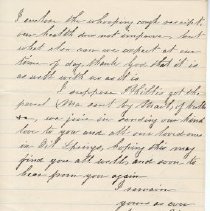 I enclose the whooping cough receipt,
our health does not improve, but
what else can we expect at our
time of day, thank God that it is
as well with us as it is
I suppose got the
parcel Ma sent by Mail, if
so, we join in sending our kind
love to you and all our loved ones
in Oil Springs, hoping this may
find you all well, and soon to
hear from you again
I remain
yours as ever